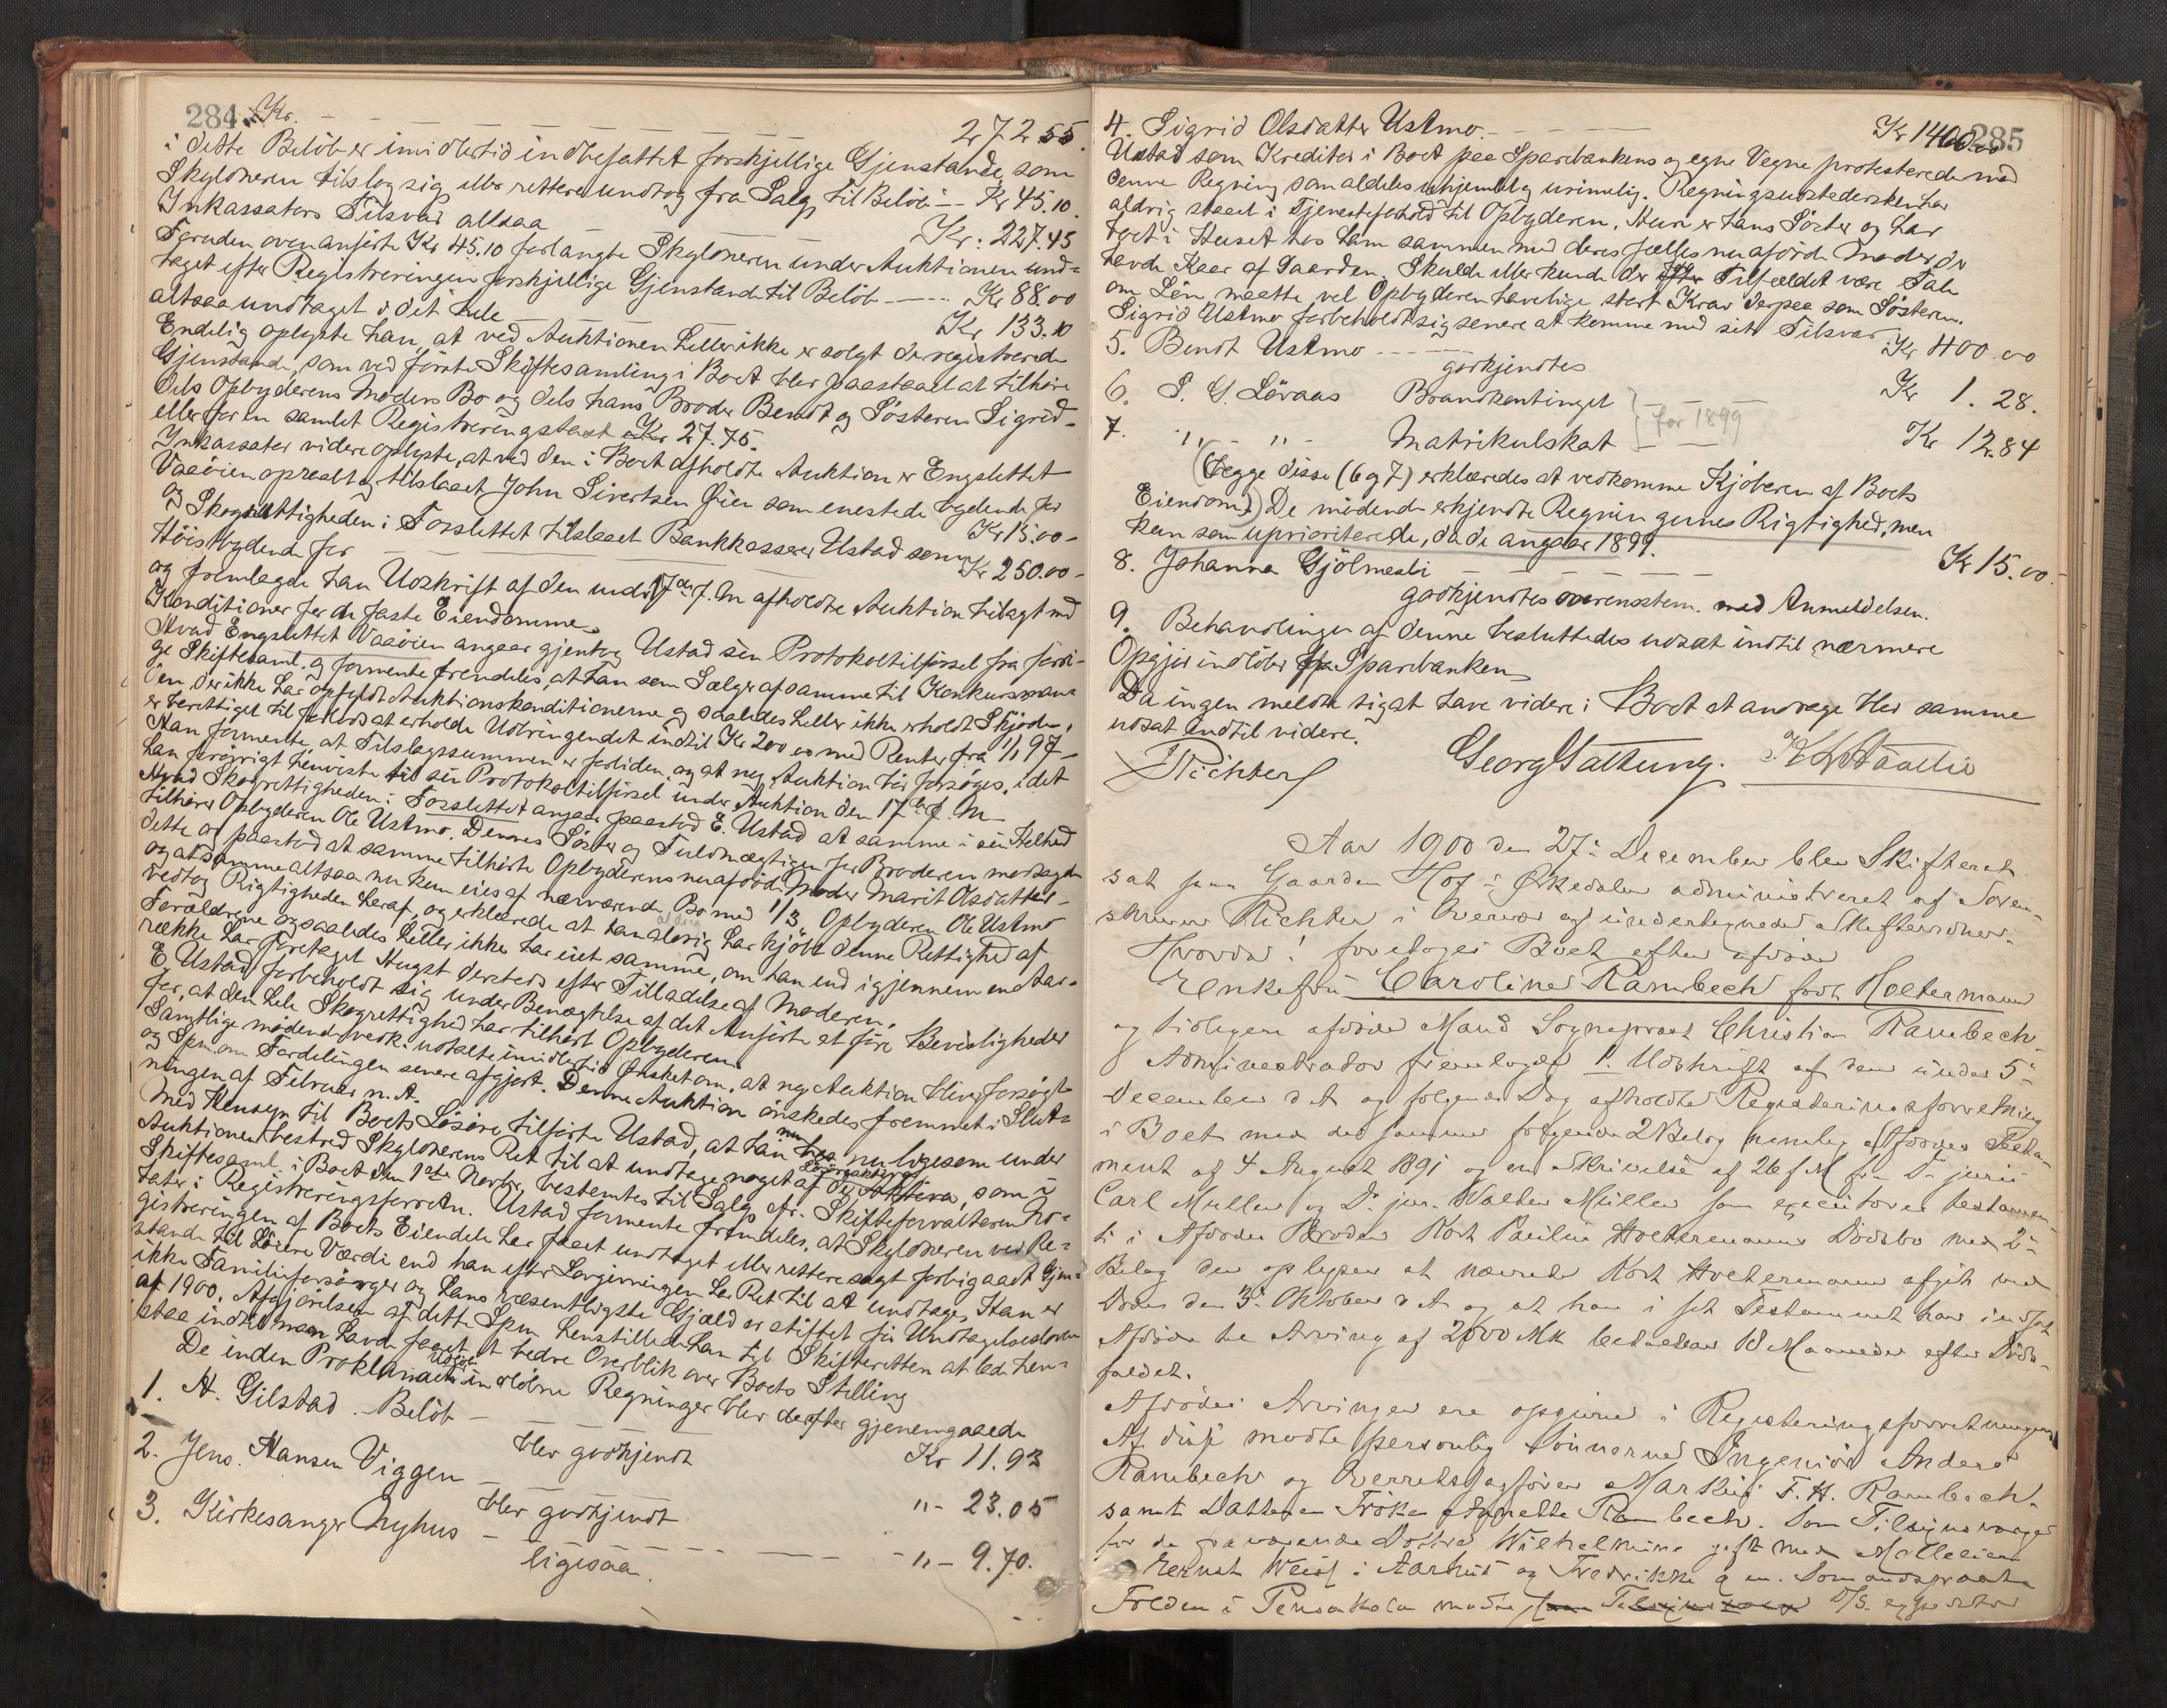 284
Kr. 272 55.
i dette Belöb er imidlertid indbefattet forskjellige Gjenstande, som
Skyldneren tilslog sig eller rettere undtog fra Salg, til Belöb — Kr 45.10.
Inkassators Tilsvar altsaa Kr: 227.45
Foruden ovenanførte Kr 45.10 forlangte Skyldneren under Auktionen und-
taget efter Registreringen forskjellige Gjenstande til Belöb — Kr 88.00
altsaa undtaget i det hele Kr 133.10
Endelig oplyste han, at ved Auktionen heller ikke er solgt de registrerede
Gjenstande, som ved første Skiftesamling i Boet blev paastaaet at tilhøre
dels Opbyderens Moders Bo og dels hans Broder Bendt og Søsteren Sigrid
eller for en samlet Registreringstaxt Kr 27.75.
Inkassator videre oplyste, at ved den i Boet afholdte Auktion er Engslettet
Vasöien opraabt og tilslaaet John Sivertsen Øien som eneste bydende for
Kr 15.00-
og Skogrettigheden i Forslettet tilslaaet Bankkasserer Ustad som
Höistbydende for Kr 250.00-
og fremlagde han Udskrift af den under 17de f. M afholdte Auktion tilligemed
Konditioner for de faste Eiendomme.
Hvad Engslettet Vasöien angaar gjentog Ustad sin Protokoltilførsel fra forri-
ge Skiftesaml. og formente fremdeles, at han som Sælger af samme til Konkursman-
den, der ikke har opfyldt Auktionskonditionerne og saaledes heller ikke erholdt Skjøde,
er berettiget til forlods at erholde Udbringendet indtil Kr 200 00 med Renter fra 1/1 97 -
Han formente, at Tilslagssummen er forliden, og at ny Auktion bör forsøges, idet
han forøvrigt henviste til sin Protokoltilførsel under Auktion den 17de f. M
Hvad Skogrettigheden i Forslettet angaar paastod E. Ustad at samme i sin Helhed
tilhører Opbyderen Ole Ustmo. Dennes Søster og Fuldmægtigen for Broderen modsagde
dette og paastod at samme tilhørte Opbyderens nu afdöde Moder Marit Olsdatter
og at samme altsaa nu kun eies af nærværende Bo med 1/3. Opbyderen Ole Ustmo
vedtog Rigtigheden heraf, og erklærede at han aldrig har kjöbt denne Rettighed af
Forældrene og saaledes heller ikke har eiet samme, om han end igjennem en Aar-
række har foretaget Hugst dersteds efter Tilladelse af Moderen.
E. Ustad forbeholdt sig under Benægtelse af det Anførte at føre Bevisligheder
for, at den hele Skogrettighed har tilhørt Opbyderen.
Samtlige mødende vedk. udtalte imidlertid Ønsket om, at ny Auktion bliver forsøgt
og Spm. om Fordelingen senere afgjort. Denne Auktion ønskedes fremmet i Slut-
ningen af Februar n. A.
Med Hensyn til Boets Løsøre tilførte Ustad, at han nu ligesom under
Auktionen bestred Skyldnerens Ret til at undtage noget af de Aktiva, som i
Skiftesaml. i Boet den 1ste Novbr. bestemtes til Salg cfr. Skifteforvalterens No-
tater i Registreringsforretn. Ustad formente fremdeles, at Skyldneren ved Re-
gistreringen af Boets Eiendele har faaet undtaget eller rettere sagt forbigaaet Gjen-
stande til större Værdi end han efter Lovgivningen har Ret til at undtage. Han er
ikke Familieforsørger og hans væsentligste Gjæld er stiftet før Undtagelsesloven
af 1900. Afgjörelsen af dette Spm. henstillede han til Skifteretten at lade hen-
staa indtil man havde faaet et bedre Overblik over Boets Stilling
De inden Proklamaets Udløb indlöbne Regninger blev derefter gjennemgaaede
1. A. Gilstad. Belöb — Kr 11.93
blev godkjendt
2. Jens Hansen Viggen — " - 23.05
blev godkjendt
3. Kirkesanger Nyhus — " - 9.70.
ligesaa.
285
4. Sigrid Olsdatter Ustmo. — Kr 1400.00
Ustad som Kreditor i Boet paa Sparebankens og egne Vegne protesterede mod
denne Regning som aldeles uhjemlet og urimelig. Regningsudstedersken har
aldrig staaet i Tjenesteforhold til Opbyderen. Hun er hans Søster og har
boet i Huset hos ham sammen med deres fælles nu afdöde Moder, der
havde Kaar af Gaarden. Skulde eller kunde der i Tilfældet være Tale
om Løn, maatte vel Opbyderen have lige stort Krav derpaa som Søsteren.
Sigrid Ustmo forbeholdt sig senere at komme med sit Tilsvar.
5. Bendt Ustmo — Kr 400.00
godkjendtes
6. P. G. Løvaas Brandkontingent } for 1899 Kr 1.28.
7. " - " - Matrikulskat } Kr 12.84
(Begge disse (6 og 7) erklæredes at vedkomme Kjøberen af Boets
Eiendom.) De mødende erkjendte Regningernes Rigtighed, men
kun som uprioriterede, da de angaar 1899.
8. Johanna Gjölmesli — Kr 15.00.
godkjendtes overensstem. med Anmeldelsen.
9. Behandlingen af denne besluttedes udsat indtil nærmere
Opgjør indlöber fra Sparebanken
Da ingen meldte sig at have videre i Boet at andrage blev samme
udsat indtil videre.
Richter Georg Sattung.
Aar 1900 den 27: December blev Skifteret
sat paa Gaarden Hof i Ørkedalen administreret af Soren-
skriver Richter i Overvær af undertegnede Skifteridner.
Hvorda! foretoges Boet efter afdøde
Enkefru Caroline Rambech født Holtermann
og tidligere afdøde Mand Sogneprest Christian Rambech.
Administrator fremlagde 1. Udskrift af den under 5:
December d A og følgende Dag afholdte Registeringsforretning
i Boet med det samme følgende 2 Belæg nemlig Afdødes Testa-
ment af 4 August 1891 og en Skrivelse af 26 f M fra Dr juris
Carl Muller og Dr. jur. Walter Müller som executores testamen-
ti i Afdødes Broder Kort Paulin Holtermanns Dødsbo med 2:
Belæg der oplyser at nævnte Kort Holtermann afgik ved
Døden den 3: Oktober d A og at han i sit Testament har indsat
Afdøde til Arving af 2000 Mk betalbar 18 Maaneder efter Døds-
faldet.
Afdødes Arvinger ere opgivne i Registeringsforretningen
Af disse mødte personlig Sønnerne Ingeniør Anders
Rambech og Overretssagfører Markus F. H. Rambech
samt Datteren Frøken Agnette Rambech. Som Tilsynsværge
for de fraværende Døttre Wilhelmine gift med Mølleeier
Ernst Weis i Aarhus og Fredrikke g m. Sømandsprest
Folden i Pensakola mødte D/S. expeditør